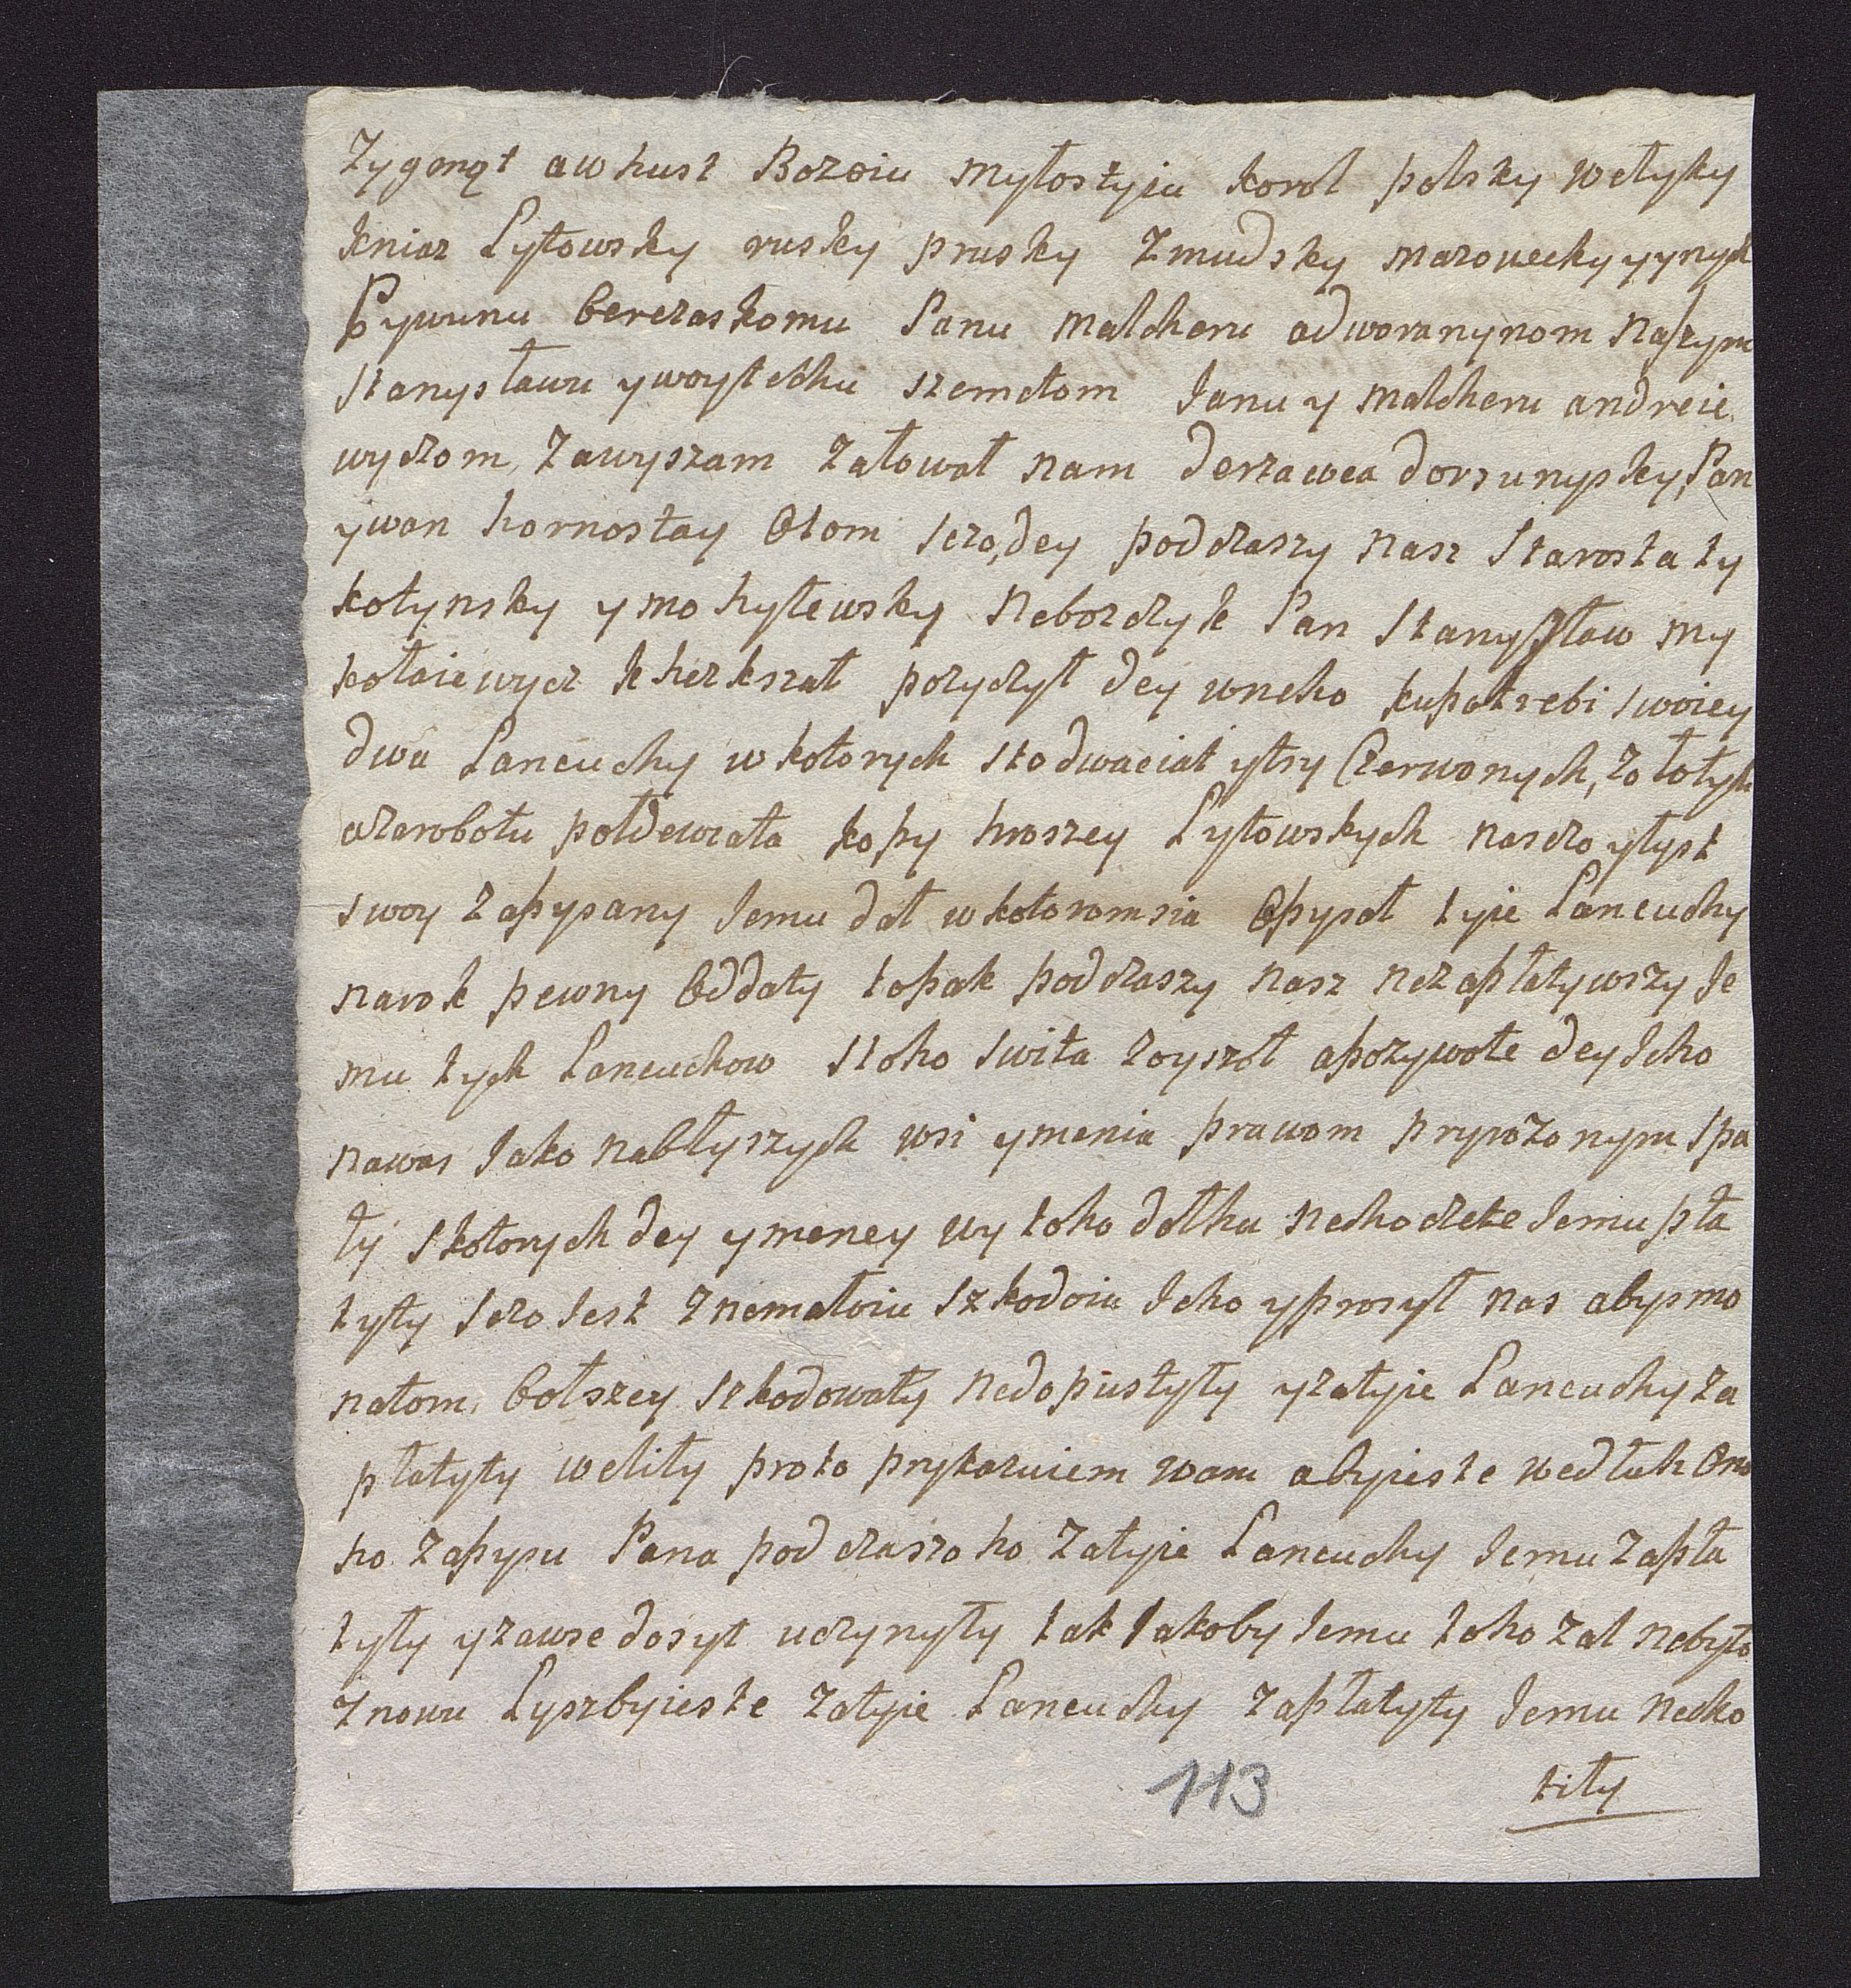 Zygmąt awhust Bozoiu myłostyiu korol polsky wełyky
kniaz Lytowsky rusky prusky Zmudsky mazovecky yynych
Pywunu berezaskomu Panu malcheru adworanynom naszym
stanysławu ywoytechu szemetom Janu y malcheru andreie
wyczom, Zawyszam Załował nam derzawca dorsunysky, Pan
ywan hornostay Otom sczo, dey podczaszy nasz Starosta ty
kotynsky ymohylewsky nebozczyk Pan Stanysław my
kołaiewycz khezkszał pozyczył dey wneho kupotrebi swoiey
dwa Lancuchy wkotorych stodwaciat ytry Czerwonych, zołotych
azarobotu połdewiata kopy hroszey Lytowskych nasczo ytyst
swoy zapysany Jemu dał wkotoromsia Opysał tyie Lancuchy
narok pewny Oddaty topak podczaszy nasz nezapłatywszy Je
mu tych Lancuchow stoho swita zoyszoł apozywote dey Jeho
nawas Jako nabłyszych wsi ymenia prawom pryrozonym spa
ły skotorych dey ymeney wy toho dołhu nechoczete Jemu pła
tyty sczo Jest znemałoiu szkodoiu Jeho yprosył nas abysmo
natom bołszey szkodowaty nedopustyły yzatyie Lancuchy za
płatyty weliły proto prykazuiem wam abyieste wedłuh Ono
ho zapysu Pana podczaszoho zatyie Lancuchy Jemu zapła
tyły yzawse dosyt uczynyły tak Jakoby Jemu toho zal nebyło
znowu Lyszbyieste zatyie Lancuchy zapłatyty Jemu necho
tiły
113